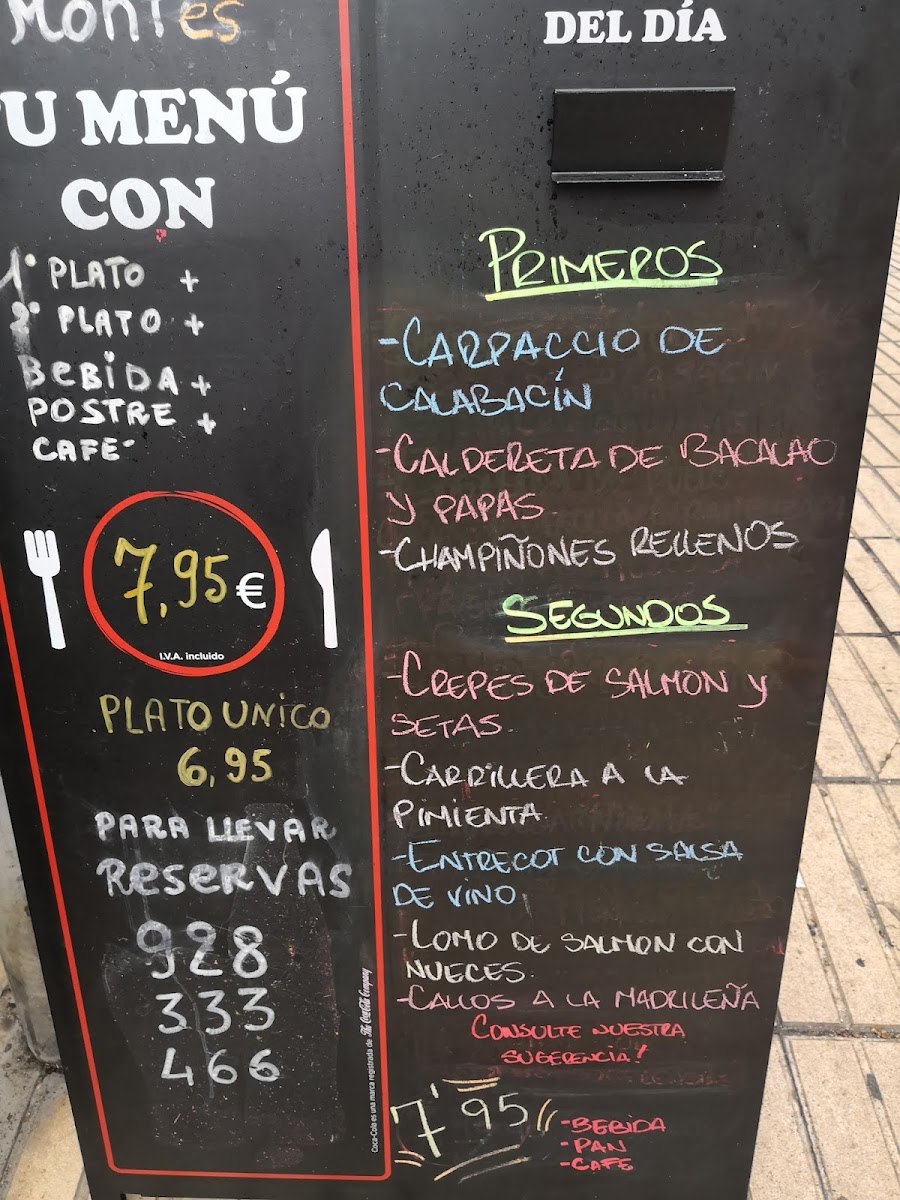 Montes
U MENÚ
CON
1º PLATO +
2º PLATO +
BEBIDA +
POSTRE +
CAFE
7,95 €
I.V.A. incluido
PLATO UNICO
6,95
PARA LLEVAR
RESERVAS
928
333
466
Coca-Cola es una marca registrada de The Coca-Cola Company
DEL DÍA
PRIMEROS
-CARPACCIO DE
CALABACÍN
-CALDERETA DE BACALAO
Y PAPAS
-CHAMPIÑONES RELLENOS
SEGUNDOS
-CREPES DE SALMON Y
SETAS.
-CARRILLERA A LA
PIMIENTA.
-ENTRECOT CON SALSA
DE VINO
-LOMO DE SALMON CON
NUECES.
-CALLOS A LA MADRILEÑA
CONSULTE NUESTRA
SUGERENCIA!
7'95
-BEBIDA
-PAN
-CAFE